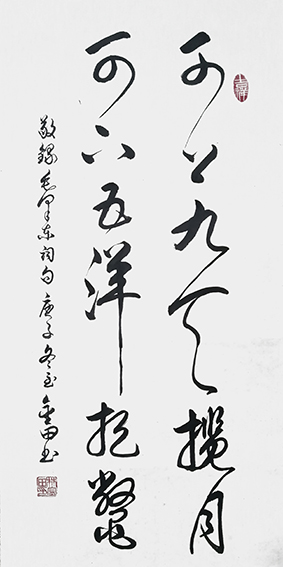 可上九天揽月
可下五洋捉鼈
敬録毛泽东词句 庚子冬至 金田书